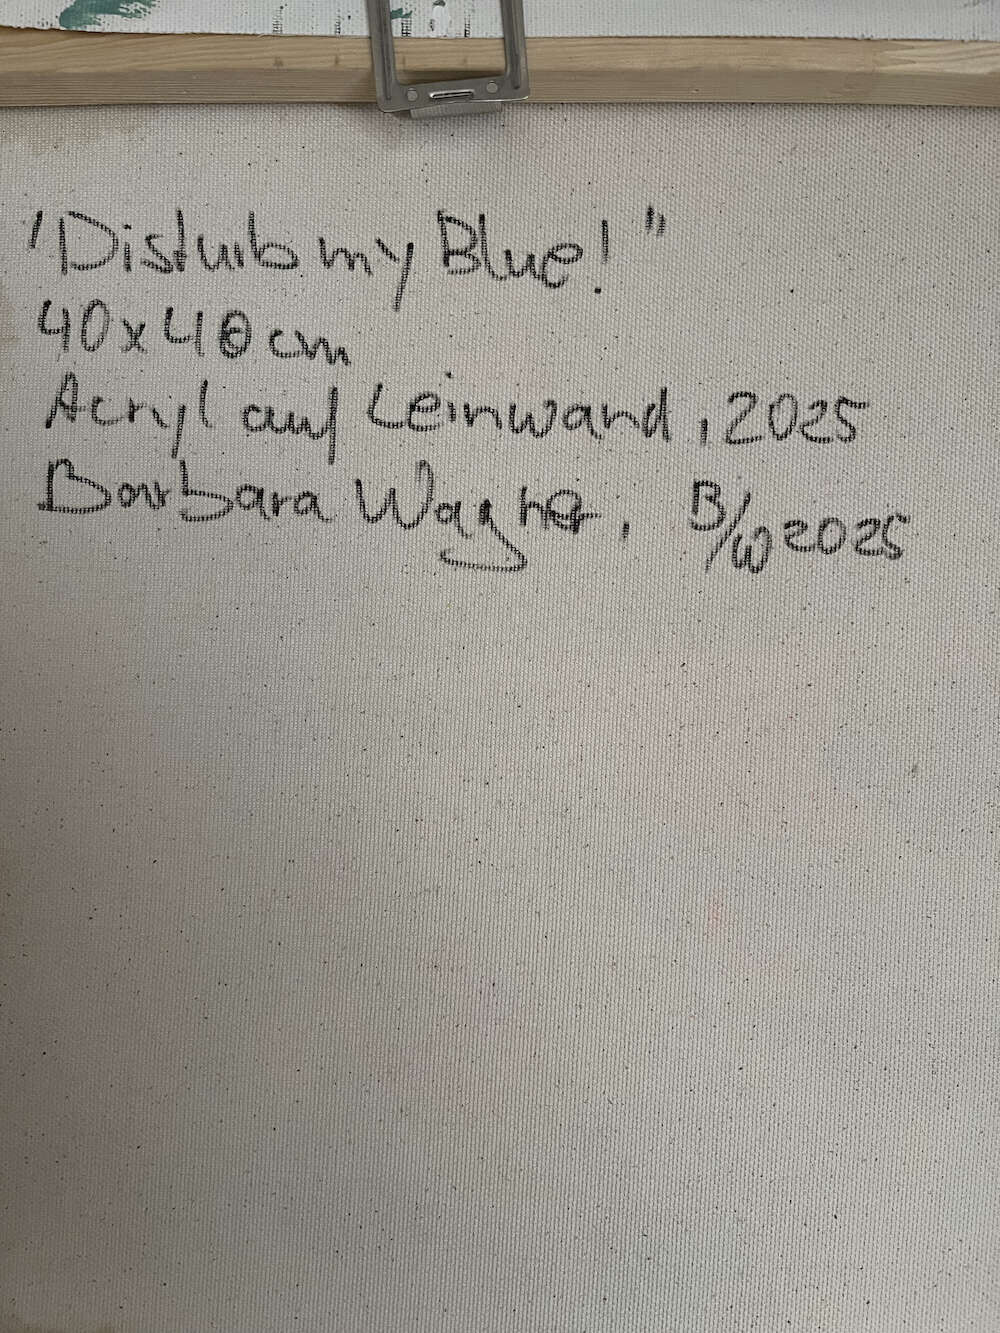 "Disturb my Blue!"
40x40 cm
Acryl auf Leinwand, 2025
Barbara Wagner, B/W 2025